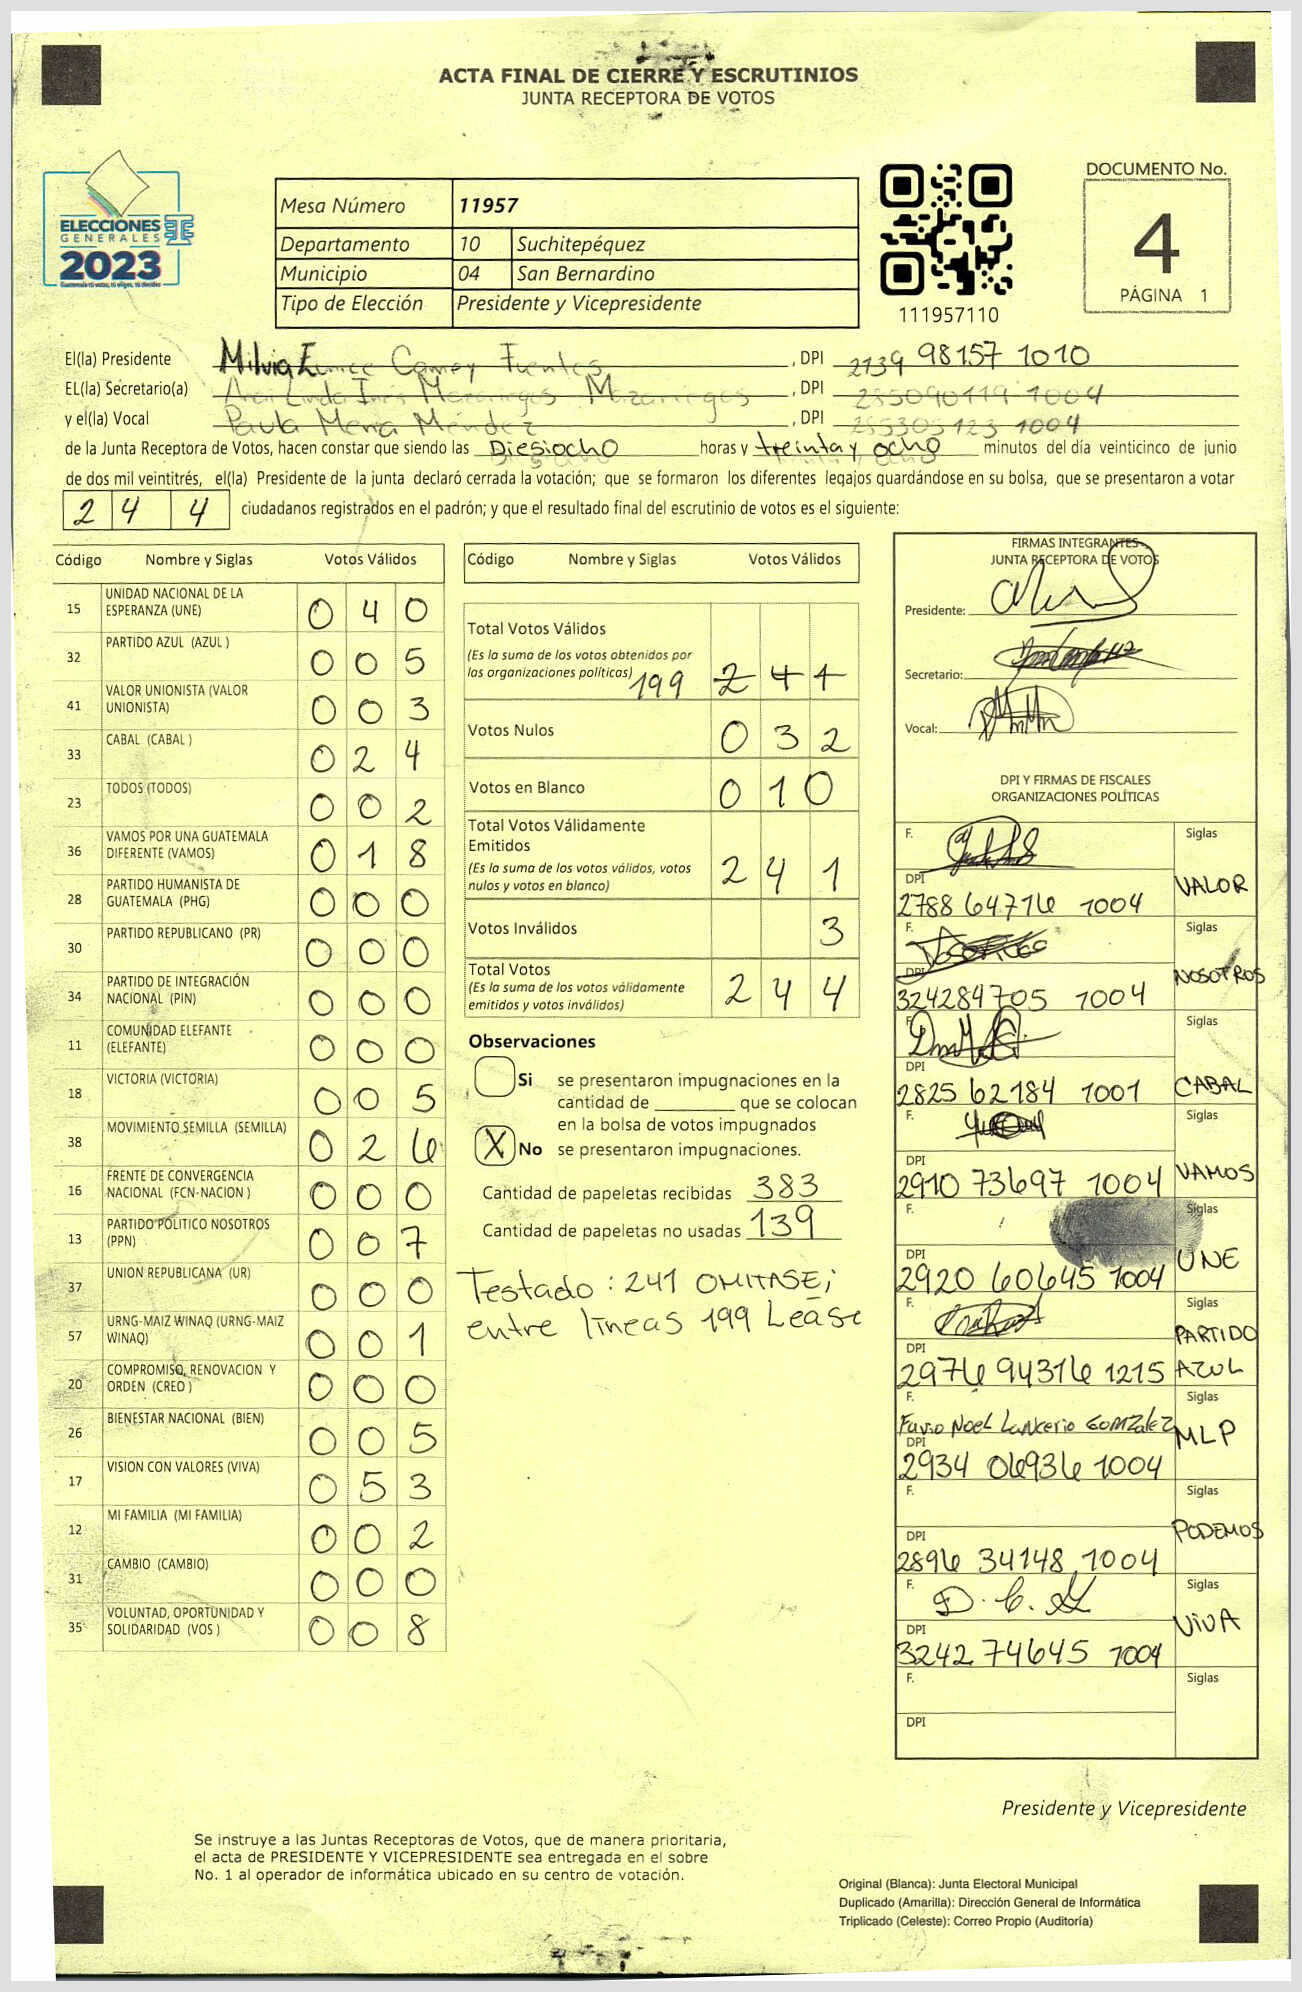 ACTA FINAL DE CIERRE Y ESCRUTINIOS
JUNTA RECEPTORA DE VOTOS
ELECCIONES
GENERALES
2023
Guatemala tú votas, tú eliges, tú decides
Mesa Número 11957
Departamento 10 Suchitepéquez
Municipio 04 San Bernardino
Tipo de Elección Presidente y Vicepresidente
111957110
DOCUMENTO No.
4
PÁGINA 1
El(la) Presidente Milvia Eunice Camey Fuentes, DPI 2139 98157 1010
EL(la) Secretario(a) Ana Linda Inés Mazariegos Mazariegos, DPI 285090119 1004
y el(la) Vocal Paula María Méndez, DPI 285305123 1004
de la Junta Receptora de Votos, hacen constar que siendo las Diesiocho horas y treinta y ocho minutos del día veinticinco de junio
de dos mil veintitrés, el(la) Presidente de la junta declaró cerrada la votación; que se formaron los diferentes legajos guardándose en su bolsa, que se presentaron a votar
2 4 4 ciudadanos registrados en el padrón; y que el resultado final del escrutinio de votos es el siguiente:
Código Nombre y Siglas Votos Válidos
15 UNIDAD NACIONAL DE LA ESPERANZA (UNE) 0 4 0
32 PARTIDO AZUL (AZUL ) 0 0 5
41 VALOR UNIONISTA (VALOR UNIONISTA) 0 0 3
33 CABAL (CABAL ) 0 2 4
23 TODOS (TODOS) 0 0 2
36 VAMOS POR UNA GUATEMALA DIFERENTE (VAMOS) 0 1 8
28 PARTIDO HUMANISTA DE GUATEMALA (PHG) 0 0 0
30 PARTIDO REPUBLICANO (PR) 0 0 0
34 PARTIDO DE INTEGRACIÓN NACIONAL (PIN) 0 0 0
11 COMUNIDAD ELEFANTE (ELEFANTE) 0 0 0
18 VICTORIA (VICTORIA) 0 0 5
38 MOVIMIENTO SEMILLA (SEMILLA) 0 2 6
16 FRENTE DE CONVERGENCIA NACIONAL (FCN-NACION ) 0 0 0
13 PARTIDO POLITICO NOSOTROS (PPN) 0 0 7
37 UNION REPUBLICANA (UR) 0 0 0
57 URNG-MAIZ WINAQ (URNG-MAIZ WINAQ) 0 0 1
20 COMPROMISO, RENOVACION Y ORDEN (CREO ) 0 0 0
26 BIENESTAR NACIONAL (BIEN) 0 0 5
17 VISION CON VALORES (VIVA) 0 5 3
12 MI FAMILIA (MI FAMILIA) 0 0 2
31 CAMBIO (CAMBIO) 0 0 0
35 VOLUNTAD, OPORTUNIDAD Y SOLIDARIDAD (VOS ) 0 0 8
Código Nombre y Siglas Votos Válidos
Total Votos Válidos
(Es la suma de los votos obtenidos por
las organizaciones políticas) 199 2 4 1
Votos Nulos 0 3 2
Votos en Blanco 0 1 0
Total Votos Válidamente
Emitidos
(Es la suma de los votos válidos, votos
nulos y votos en blanco) 2 4 1
Votos Inválidos 3
Total Votos
(Es la suma de los votos válidamente
emitidos y votos inválidos) 2 4 4
Observaciones
Si se presentaron impugnaciones en la
cantidad de ________ que se colocan
en la bolsa de votos impugnados
X No se presentaron impugnaciones.
Cantidad de papeletas recibidas 383
Cantidad de papeletas no usadas 139
Testado : 241 OMITASE;
entre lineas 199 Lease
FIRMAS INTEGRANTES
JUNTA RECEPTORA DE VOTOS
Presidente:
Secretario:
Vocal:
DPI Y FIRMAS DE FISCALES
ORGANIZACIONES POLÍTICAS
F. Siglas
DPI VALOR
2788 64716 1004
F. Siglas
DPI NOSOTROS
324284705 1004
F. Siglas
DPI
2825 62184 1001 CABAL
F. Siglas
DPI
2910 73697 1004 VAMOS
F. Siglas
DPI UNE
2920 60645 1004
F. Siglas
PARTIDO
DPI
2976 94316 1215 AZUL
F. Siglas
Favio Noel Lancerio GONZalez
DPI MLP
2934 06936 1004
F. Siglas
DPI PODEMOS
2896 34148 1004
F. Siglas
D. C. 
DPI VIVA
3242 74645 1004
F. Siglas
DPI
Presidente y Vicepresidente
Se instruye a las Juntas Receptoras de Votos, que de manera prioritaria,
el acta de PRESIDENTE Y VICEPRESIDENTE sea entregada en el sobre
No. 1 al operador de informática ubicado en su centro de votación.
Original (Blanca): Junta Electoral Municipal
Duplicado (Amarilla): Dirección General de Informática
Triplicado (Celeste): Correo Propio (Auditoría)